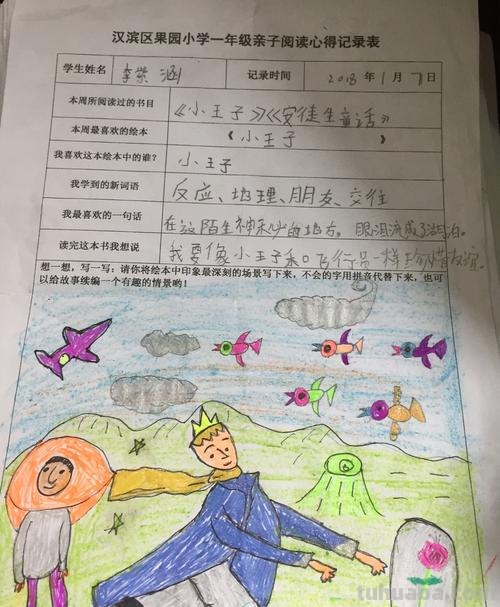 汉滨区果园小学一年级亲子阅读心得记录表
学生姓名 李紫涵 记录时间 2018年1月7日
本周所阅读过的书目 《小王子》《安徒生童话》
本周最喜欢的绘本 《小王子》
我喜欢这本绘本中的谁? 小王子
我学到的新词语 反应、地理、朋友、交往
我最喜欢的一句话 在这陌生神秘的地方。眼泪流成了湖泊。
读完这本书我想说 我要像小王子和飞行员一样珍惜友谊。
想一想,写一写:请你将绘本中印象最深刻的场景写下来,不会的字用拼音代替下来,也可
以给故事续编一个有趣的情景哟!
tuhuapa.com